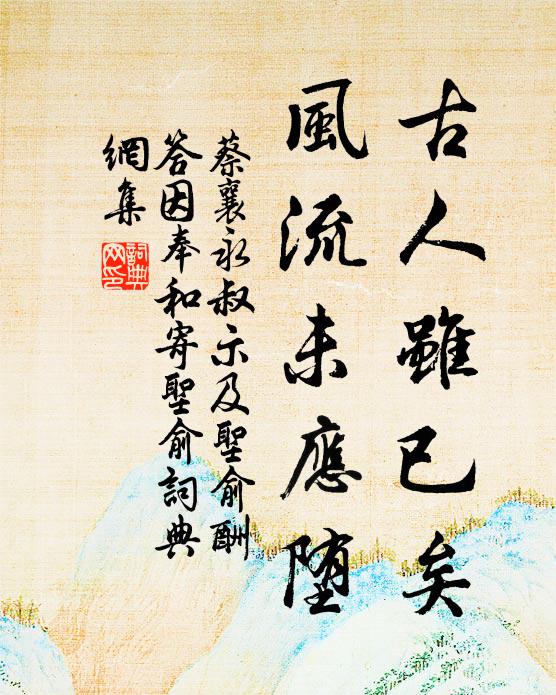 古人雖已矣
風流未應堕
蔡襄永叔示及聖俞酬
答因奉和寄聖俞詞典
網集
詞典网印